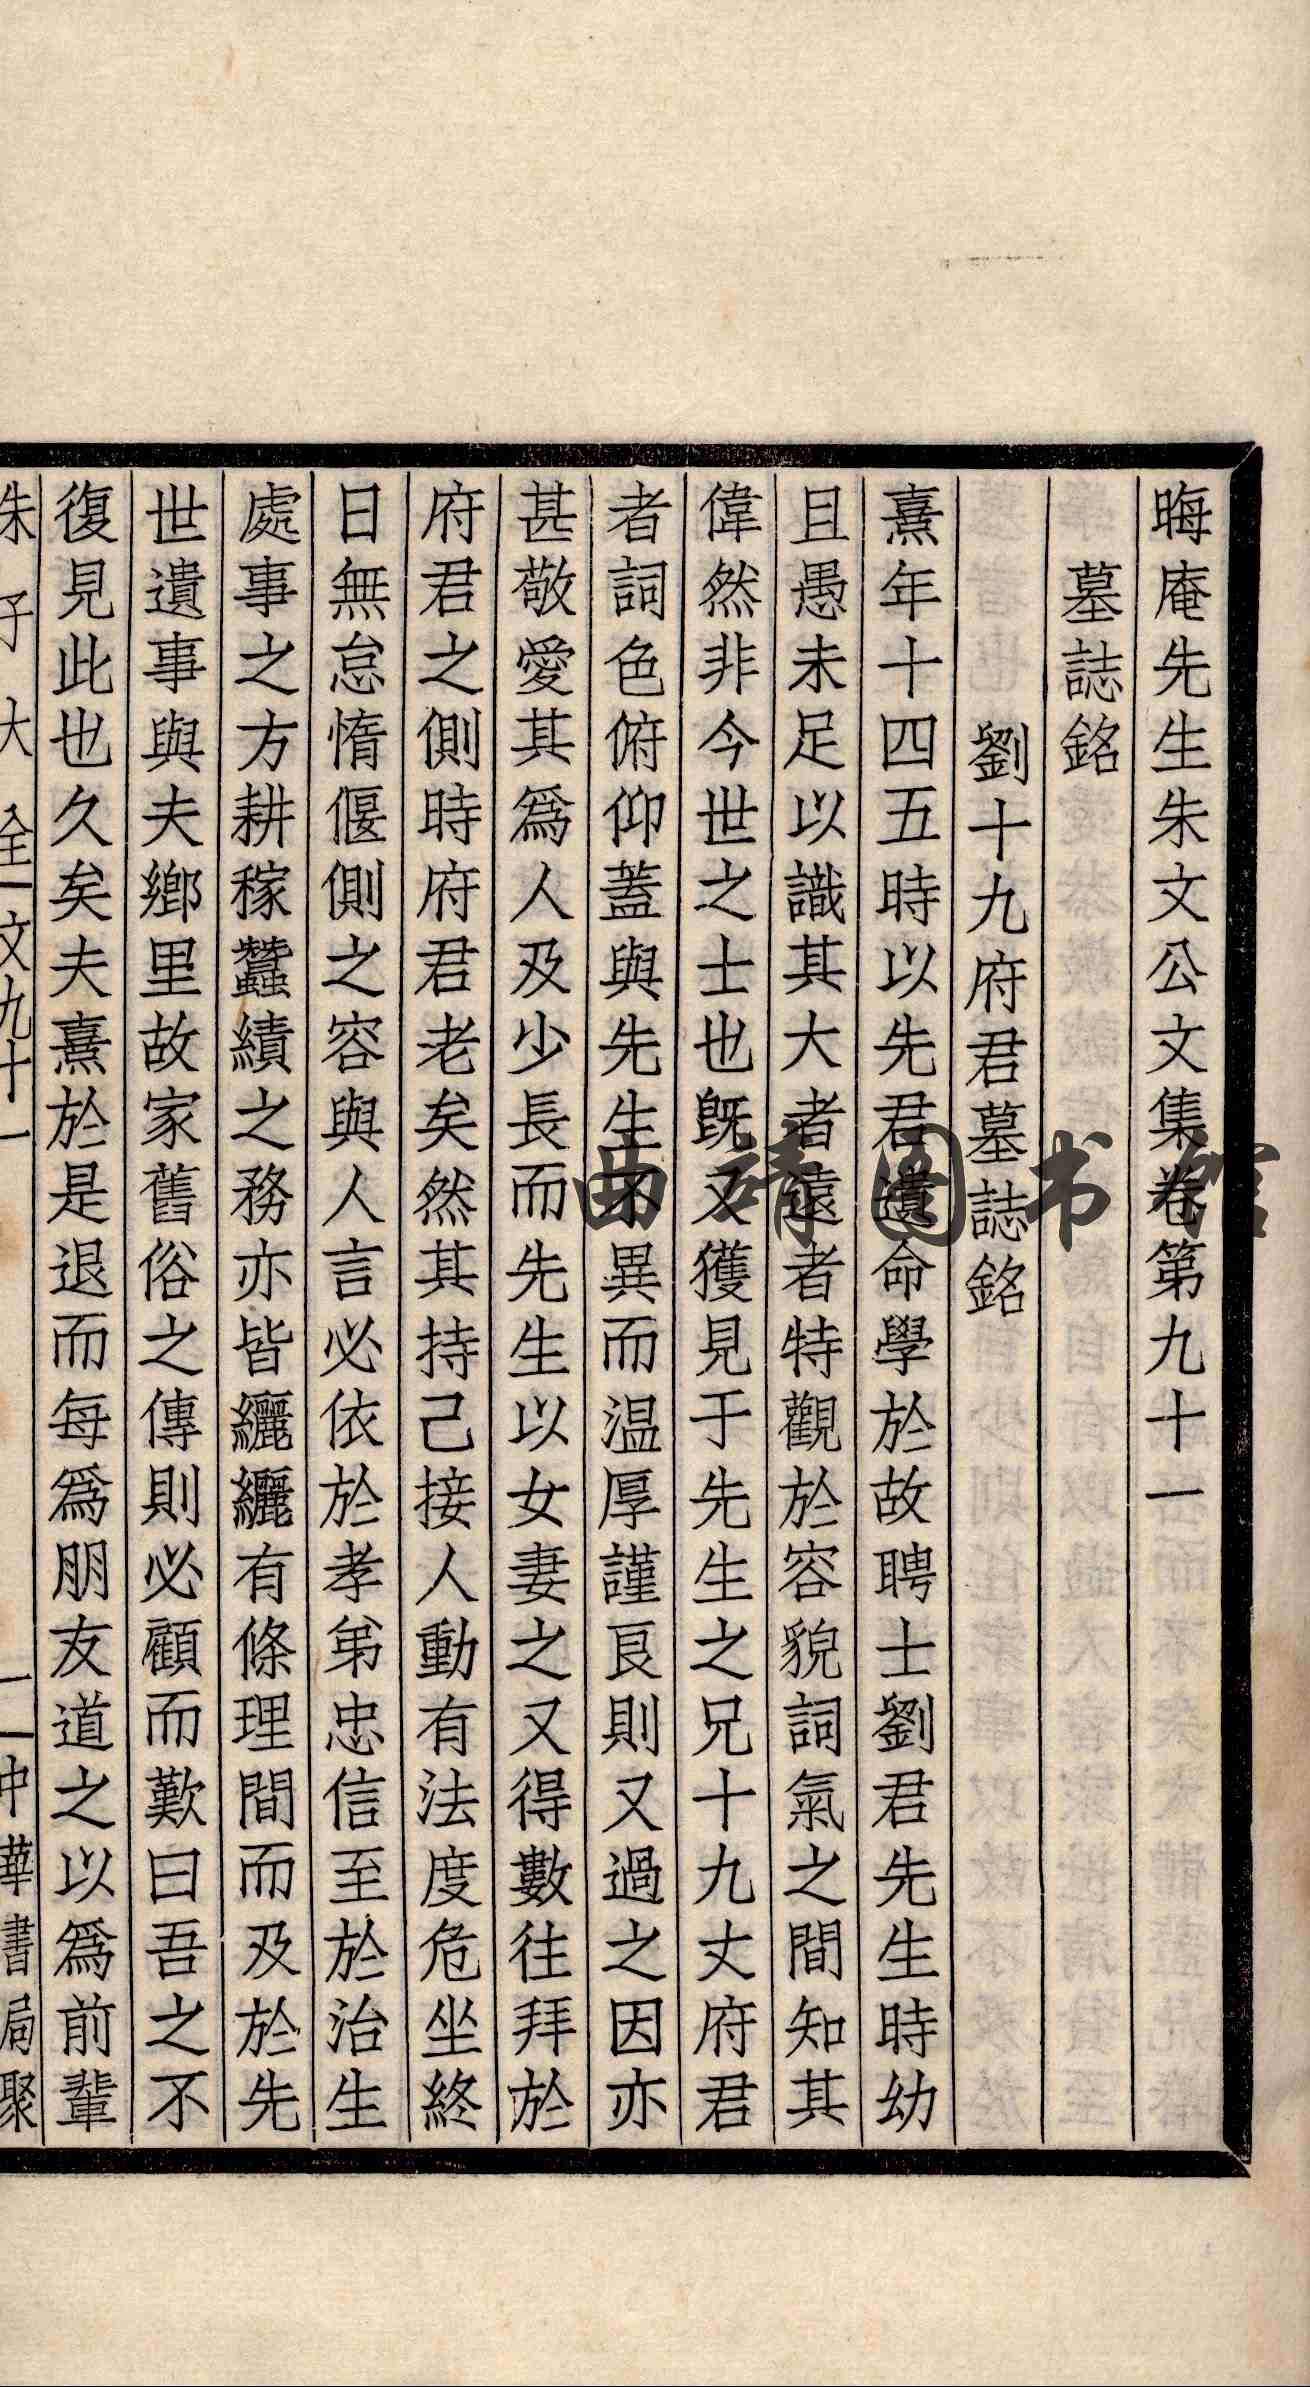 晦庵先生朱文公文集卷第九十一
墓誌銘
劉十九府君墓誌銘
熹年十四五時以先君遺命學於故聘士劉君先生時幼
且愚未足以識其大者遠者特觀於容貌詞氣之間知其
偉然非今世之士也既又獲見于先生之兄十九丈府君
者詞色俯仰蓋與先生不異而温厚謹良則又過之因亦
甚敬愛其爲人及少長而先生以女妻之又得數往拜於
府君之側時府君老矣然其持己接人動有法度危坐終
日無怠惰偃側之容與人言必依於孝弟忠信至於治生
處事之方耕稼蠶績之務亦皆纚纚有條理間而及於先
世遺事與夫鄉里故家舊俗之傳則必顧而歎曰吾之不
復見此也久矣夫熹於是退而每爲朋友道之以爲前輩
朱子大全 文九十一 一 中華書局聚
曲靖图书馆